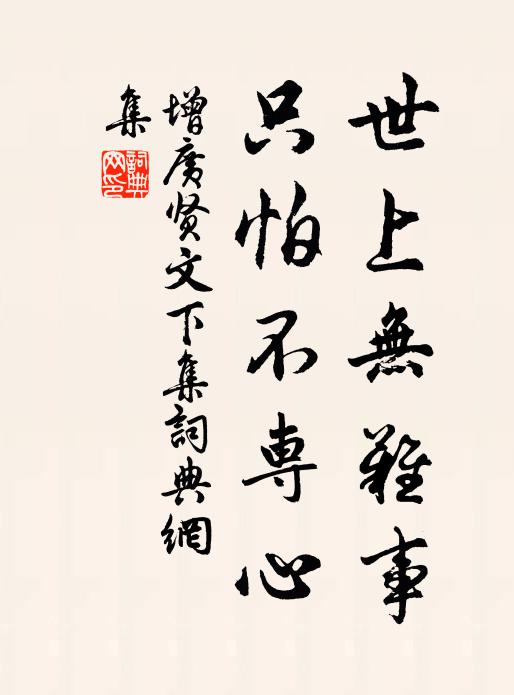 世上無難事
只怕不專心
增廣贤文下集詞典網
集
詞典網印